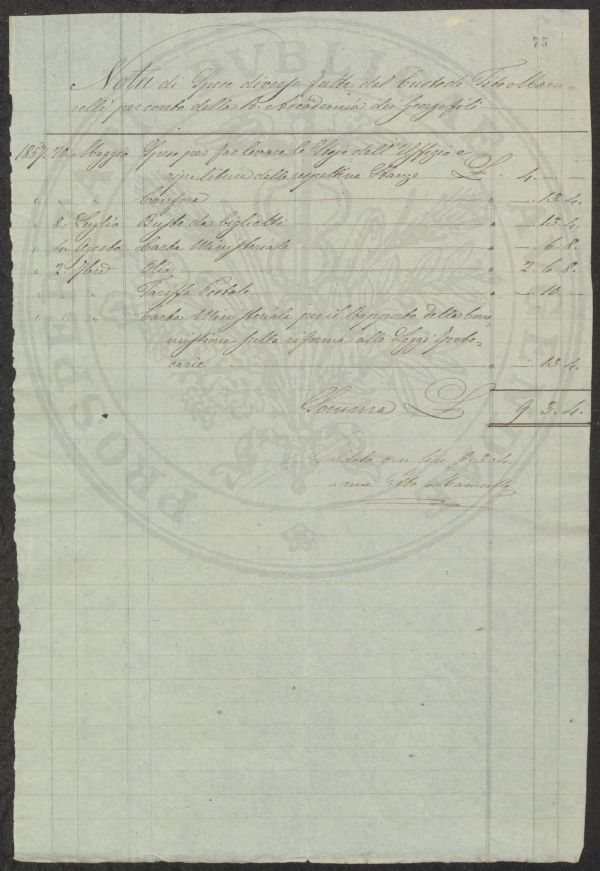 75
Nota di Spese diverse fatte dal Custode Tito Maru-
celli per conto della R. Accademia dei Georgofili
1857. 20. Maggio Spese per far levare le dell' Uffizio e
ripulitura delle respettive Stanze £ 4. — —
" " " Canfora " — 13. 4.
" 8. Luglio Buste da biglietti " — 13. 4.
" 4. Agosto Carta Ministeriale " — 6. 8.
" 2. 7bre Olio " 2. 6. 8.
" " " Tariffa Postale " — 10. —
" " " Carta Ministeriale per il Rapporto della Com-
missione sulla riforma alle Leggi Ipote-
carie " — 13. 4.
Somma £ 9. 3. 4.
Saldato con lire 9. 3. 4.
a me Tito Marucelli
PVBLICAE
PROSPERITATI